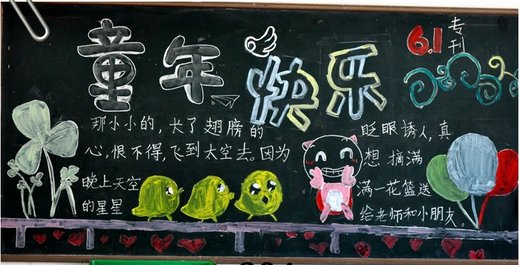 童年快乐
6.1 专刊
那小小的，长了翅膀的
心，恨不得，飞到太空去。因为
晚上天空
的星星
眨眼诱人，真
想摘满
满一花篮送
给老师和小朋友。